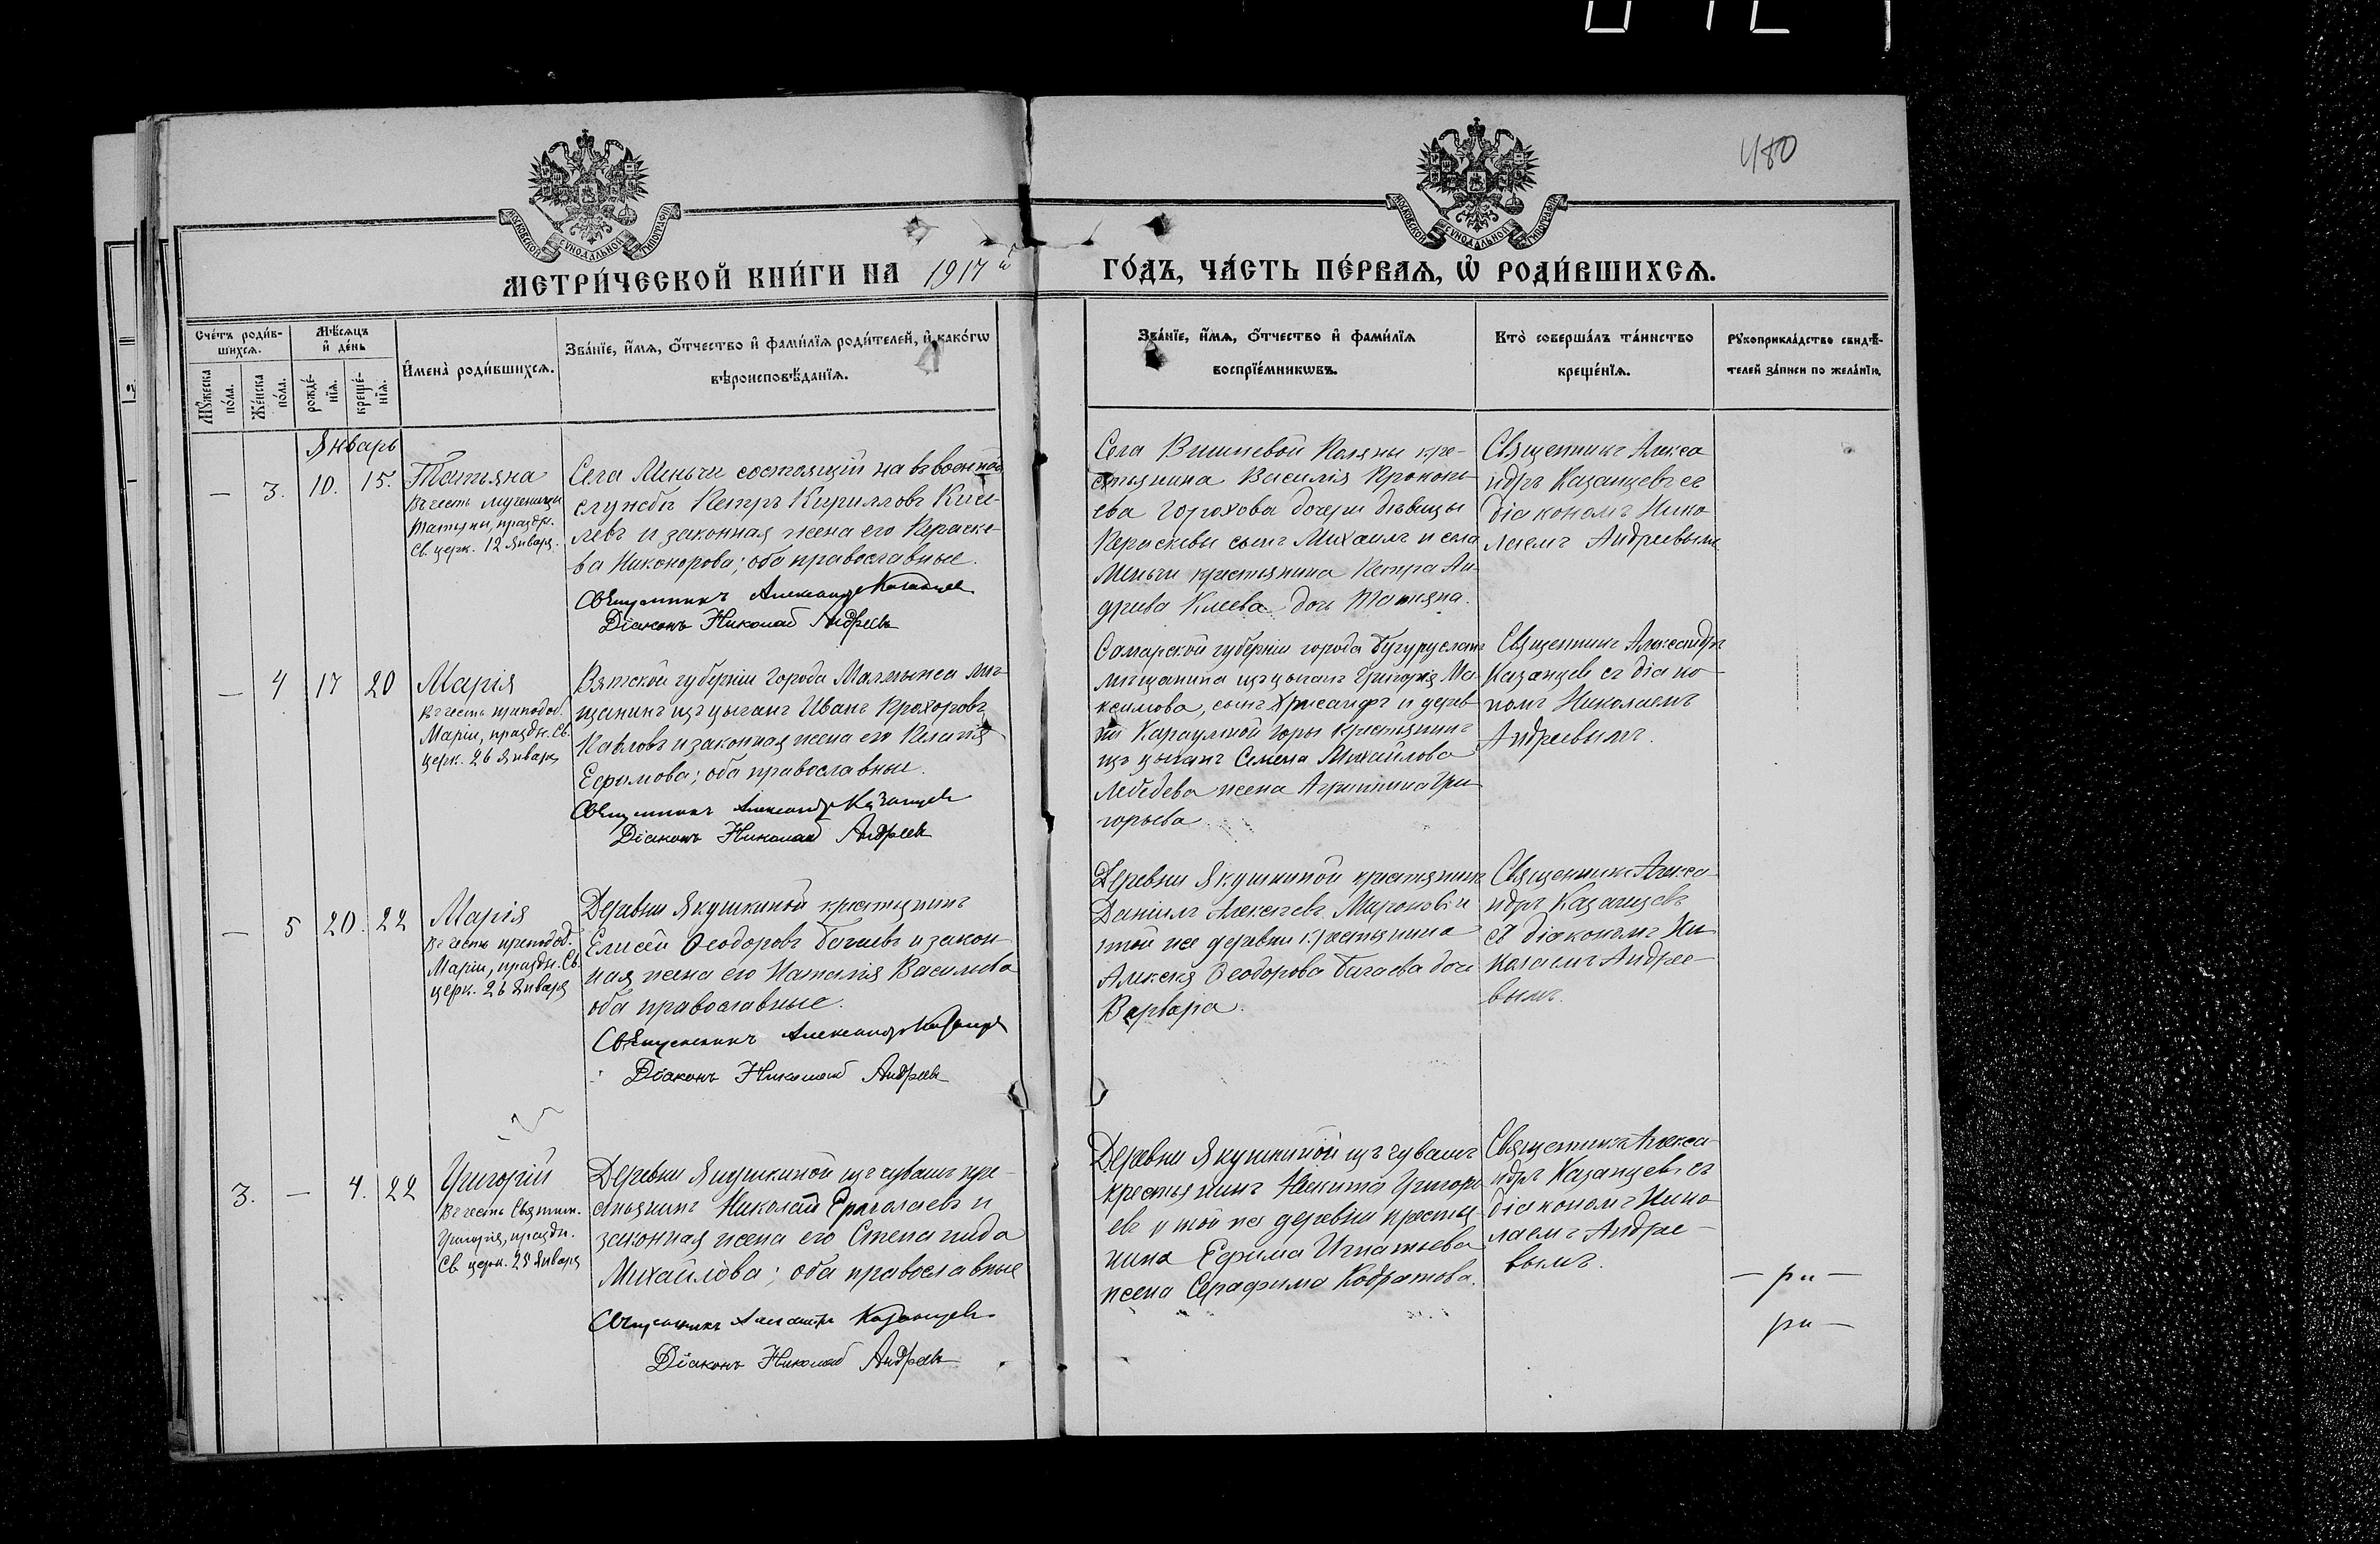 480
МЕТРИ́ЧЕСКОЙ КНИ́ГИ НА 1917 й ГО́ДЪ, ЧА́СТЬ ПЕ́РВАЯ, Ѡ РОДИ́ВШИХСЯ.
Сче́тъ роди́в-
шихся.
Мѣ́сяцъ
и҆ де́нь
Мꙋ́жеска
по́ла.
Же́нска
по́ла.
рожде́-
нїя.
креще́-
нїя.
И҆мена̀ роди́вшихся.
Зва́нїе, и҆́мя, ѻ҆́тчество и҆ фами́лїя роди́телей, и҆ како́гѡ
вѣроисповѣ́данїя.
Зва́нїе, и҆́мя, ѻ҆́тчество и҆ фами́лїя
воспрїе́мникѡвъ.
Кто̀ соверша́лъ та́инство
креще́нїя.
Рꙋкоприкла́дство свидѣ́-
телей за́писи по жела́нїю.
Январь
— 3. 10. 15.
Татьяна
Въ честь мученицы
Татіяны, праздн.
Св. церк. 12 Января.
Села Меньчи состоящій на военной
службѣ Петръ Кирилловъ Кисе-
левъ и законная жена его Параске-
ва Никонорова; оба православные.
Священникъ Александръ Казанцев
Діаконъ Николай Андреев
Села Вишневой Поляны кре-
стьянина Василія Прокопь-
ева Горохова дочери дѣвицы
Параскевы сынъ Михаилъ и села
Меньчи крестьянина Петра Ан-
дреева Клеева дочь Татьяна.
Священникъ Алекса
ндръ Казанцевъ съ
діакономъ Нико
лаемъ Андреевымъ
— 4 17 20
Марія
Въ честь преподоб.
Маріи, праздн. Св.
церк. 26 Января
Вятской губерніи города Малмыжа мѣ-
щанинъ изъ цыганъ Иванъ Прохоровъ
Павловъ и законная жена его Пелагія
Ефимова; оба православные.
Священникъ Александръ Казанцев
Діаконъ Николай Андреев
Самарской губерніи города Бугуруслана
мѣщанина изъ цыганъ Григорія Ма-
ксимова, сынъ Хрисанфъ и дерев-
ни Караульной горы крестьянина
изъ цыганъ Семена Михайлова
Лебедева жена Агриппина Гри-
горьева
Священникъ Александръ
Казанцев съ діако-
номъ Николаемъ
Андреевымъ.
— 5 20. 22
Марія
Въ честь преподоб.
Маріи, праздн. Св.
церк. 26 Января
Деревни Якушкиной крестьянинъ
Елисей Ѳеодоровъ Бигаевъ и закон-
ная жена его Наталія Васильева
оба православные.
Священникъ Александръ Казанцев
Діаконъ Николай Андреев
Деревни Якушкиной крестьянинъ
Даніилъ Алексеевъ и
той же деревни крестьянина
Алексея Ѳеодорова Бигаева дочь
Варвара.
Священникъ Алекса
ндръ Казанцевъ
съ діакономъ Ни
колаемъ Андрее-
вымъ.
3. — 4. 22
Григорій
Въ честь Святит.
Григорія, праздн.
Св. церк. 25 Января
Деревни Якушкиной изъ чувашъ кре-
стьянинъ Николай и
законная жена его Степанида
Михайлова; оба православные
Священникъ Александръ Казанцев
Діаконъ Николай Андреев
Деревни Якушкиной изъ чувашъ
крестьянинъ Никита Григорь
евъ и той же деревни крестья
нина Ефима Игнатьева
жена Серафима Кодратова.
Священникъ Алекса-
ндръ Казанцевъ съ
діакономъ Нико
лаемъ Андре-
вымъ.